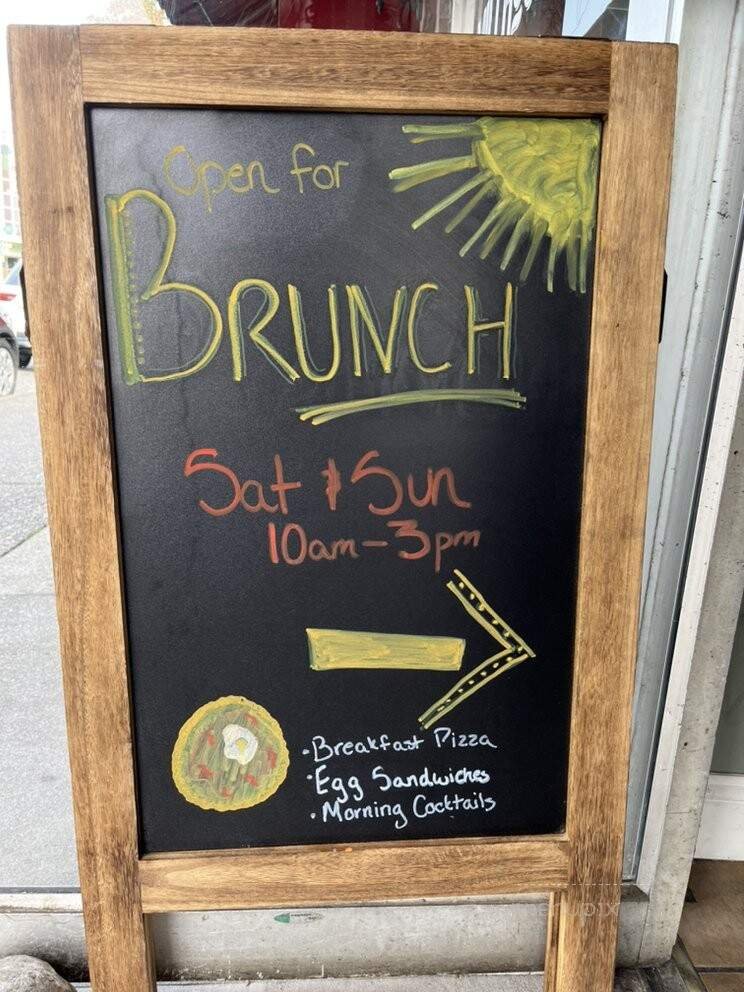 Open for
BRUNCH
Sat & Sun
10am-3pm
·Breakfast Pizza
·Egg Sandwiches
·Morning Cocktails